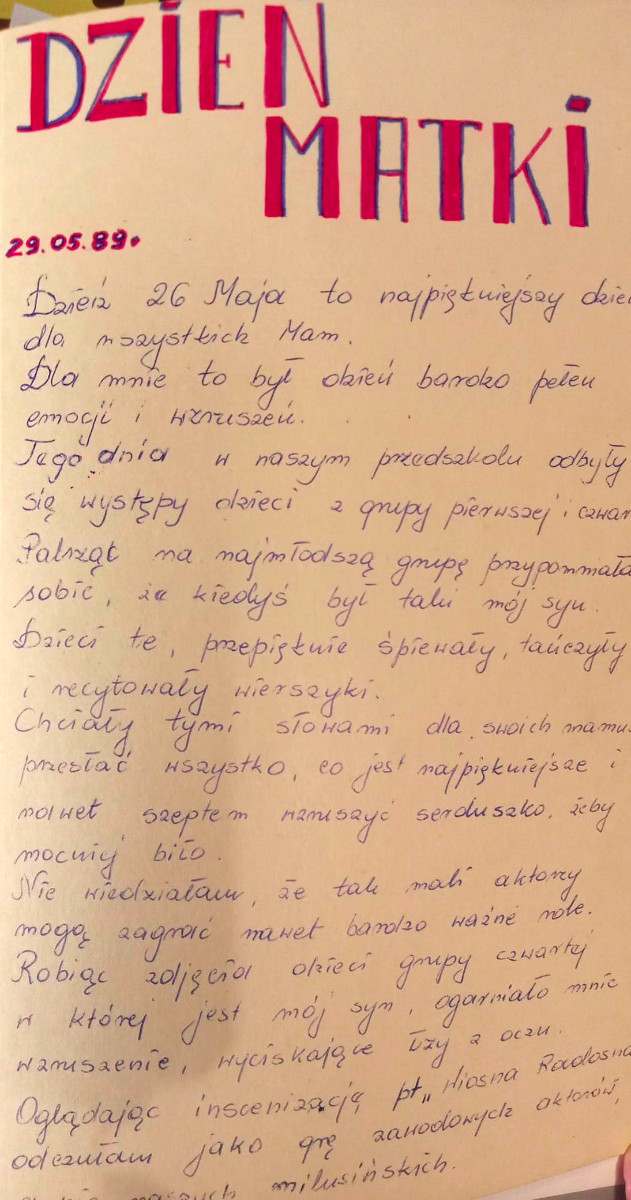 DZIEŃ
MATKI
29.05.89.
Dzień 26 Maja to najpiękniejszy dzień
dla wszystkich Mam.
Dla mnie to był dzień bardzo pełen
emocji i wzruszeń.
Tego dnia w naszym przedszkolu odbyły
się występy dzieci z grupy pierwszej i czwar
Patrząt na najmłodszą grupę przypomniała
sobie, że kiedyś był taki mój syn.
Dzieci te, przepięknie śpiewały, tańczyły
i recytowały wierszyki.
Chciały tymi słowami dla swoich mamuś
przesłać wszystko, co jest najpiękniejsze i
nawet szeptem wzruszyć serduszko, żeby
mocniej biło.
Nie wiedziałam, że tak mali aktorzy
mogą zagrać nawet bardzo ważne role.
Robiąc zdjęcia dzieci grupy czwartej
w której jest mój syn, ogarniało mnie
wzruszenie, wyciskające łzy z oczu.
Oglądając inscenizację pt „Wiosna Radosna
odczułam jako grę zawodowych aktorów,
naszych milusińskich.